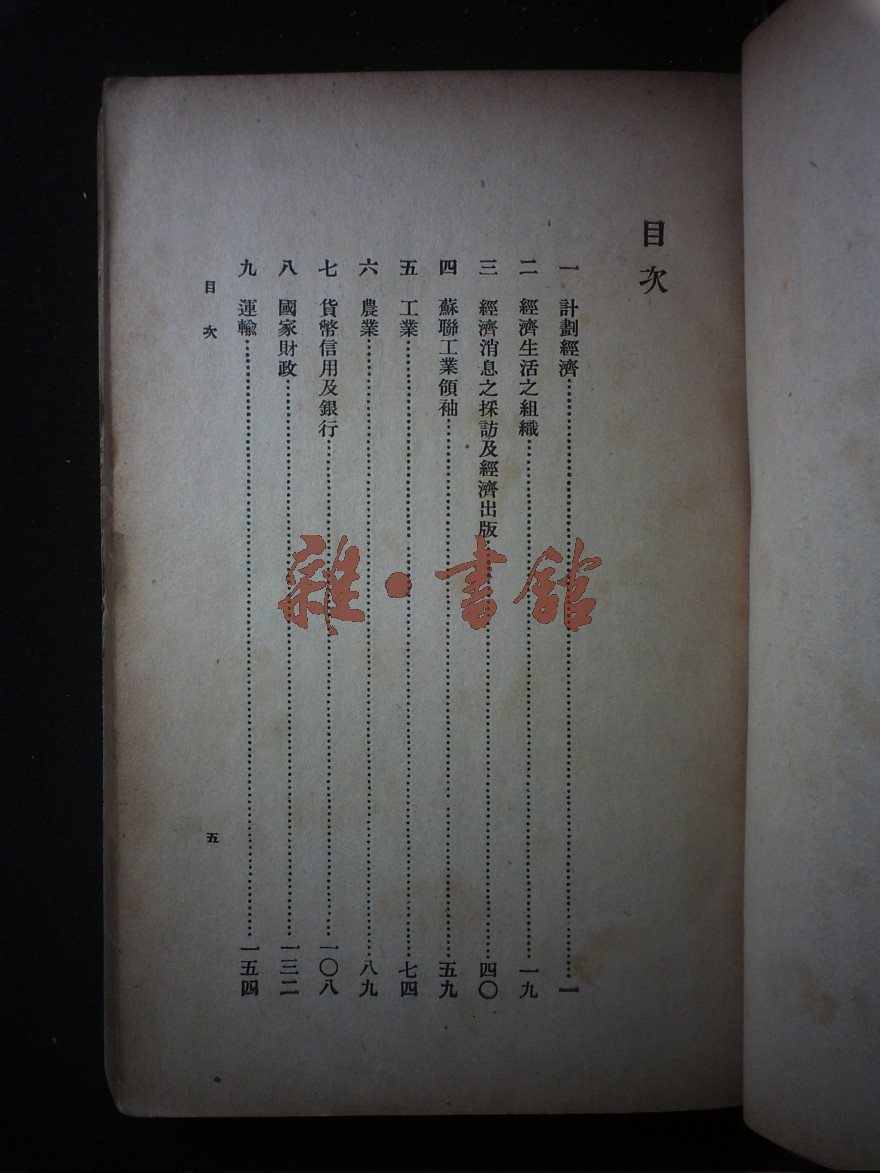 目次
一 計劃經濟……一
二 經濟生活之組織……一九
三 經濟消息之採訪及經濟出版……四〇
四 蘇聯工業領袖……五九
五 工業……七四
六 農業……八九
七 貨幣信用及銀行……一〇八
八 國家財政……一三二
九 運輸……一五四
目次 五
雜·書館